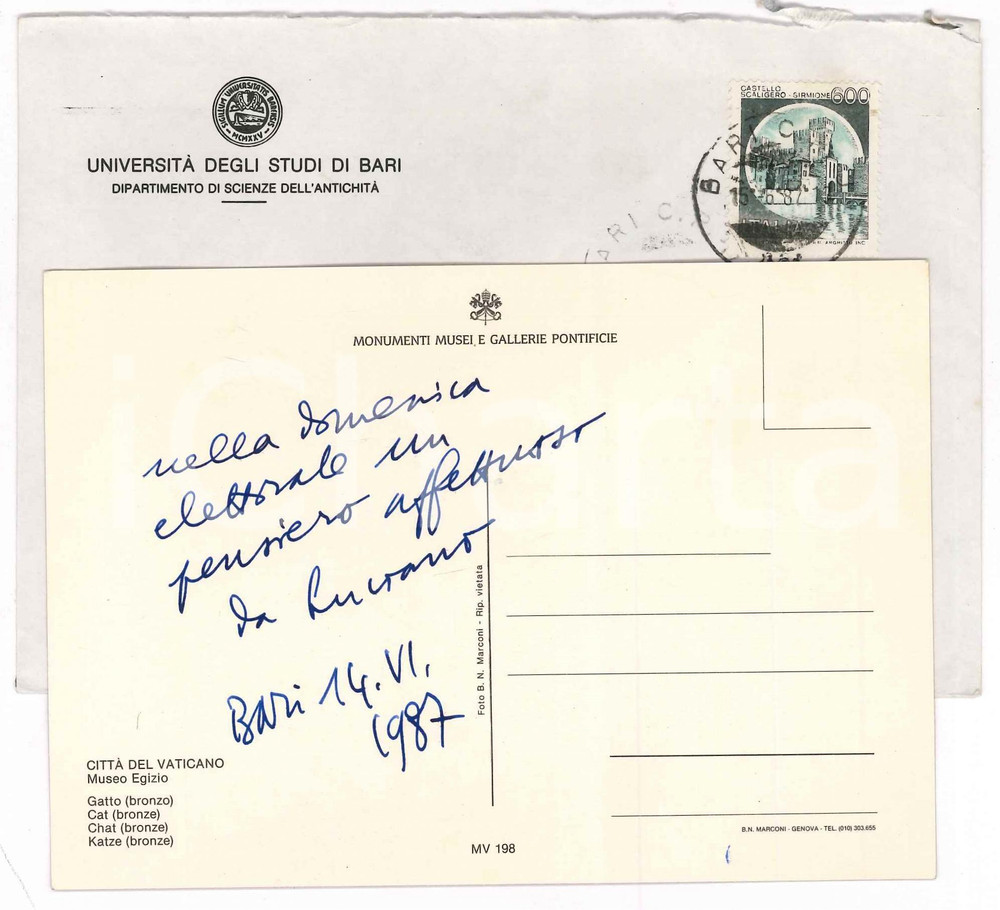 SIGILLUM UNIVERSITATIS BARENSIS
MCMXXV
UNIVERSITÀ DEGLI STUDI DI BARI
DIPARTIMENTO DI SCIENZE DELL'ANTICHITÀ
CASTELLO
SCALIGERO - SIRMIONE 600
BARI C.
15-6.87
ITALIA
ARI C.
MONUMENTI MUSEI E GALLERIE PONTIFICIE
nella domenica
elettorale un
pensiero affettuoso
da Luciano
Bari 14.VI.
1987
Foto B. N. Marconi - Rip. vietata
CITTÀ DEL VATICANO
Museo Egizio
Gatto (bronzo)
Cat (bronze)
Chat (bronze)
Katze (bronze)
MV 198
B.N. MARCONI - GENOVA - TEL. (010) 303.655
iCharta